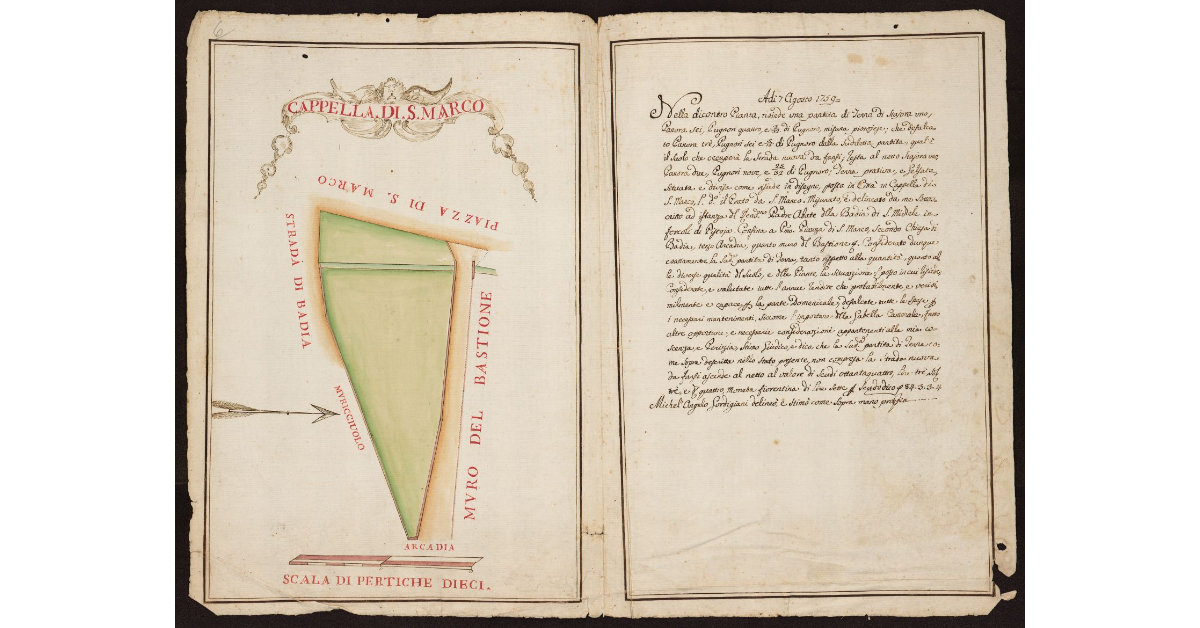 6
CAPPELLA. DI. S. MARCO
PIAZZA DI S. MARCO
STRADÀ DI BADIA
MVRICCIUOLO
MVRO DEL BASTIONE
ARCADIA
SCALA DI PERTICHE DIECI.
Adi 7 Agosto 1759=
Nella dicontro Pianta, risiede una partita di Terra di Stajora uno,
Panora sei, Pugnora quattro, e di Pugnoro, misura pistojese; che defalca
to Panora trè, Pugnori sei e di Pugnoro dalla Suddetta partita, qual'è
il Suolo che occuperà la Strada nuova da farsi; resta al netto Stajora uno
Panora due, Pugnori nove, e di Pugnoro; Terra prativa, e
Situata e divisa come risiede in disegno, posta in Città in Cappella di
S. Marco, l. d. il Prato da S. Marco. Misurato, e delineato da me Sotto:
critto ad istanza del Padre Abate della Badia di S. Michele in
forcole di Pistoja. Confina a Pmo. Piazza di S. Marco, Secondo Chiesa di
Badia, terzo Arcadia, quarto muro del Bastione Considerato dunque
esattamente la Sud. partita di Terra, tanto rispetto alla quantità, quanto al
le diverse qualità del Suolo, e delle Piante, la Situazione, posto in cui
Considerate, e valutate tutte l'annue rendite che probabilmente, e verisi
milmente è capace la parte Domenicale, defalcate tutte le Spese
i necessari mantenimenti, Siccome l'importare della Gabella fatto
altre opportune, e necessarie considerazioni appartenenti alla mia co
scienza, e Perizia, Stimo Giudico, e dico che la Sud. partita di Terra co
me Sopra descritta nello Stato presente, non compresa la Strada nuova
da farsi ascende al netto al valore di Scudi ottantaquattro, lire trè
trè, e quattro, Moneta fiorentina di lire Sette Scudo dico 84.3.3.4
Michel' Angelo Gordigiani delineò e Stimò come Sopra mano propria